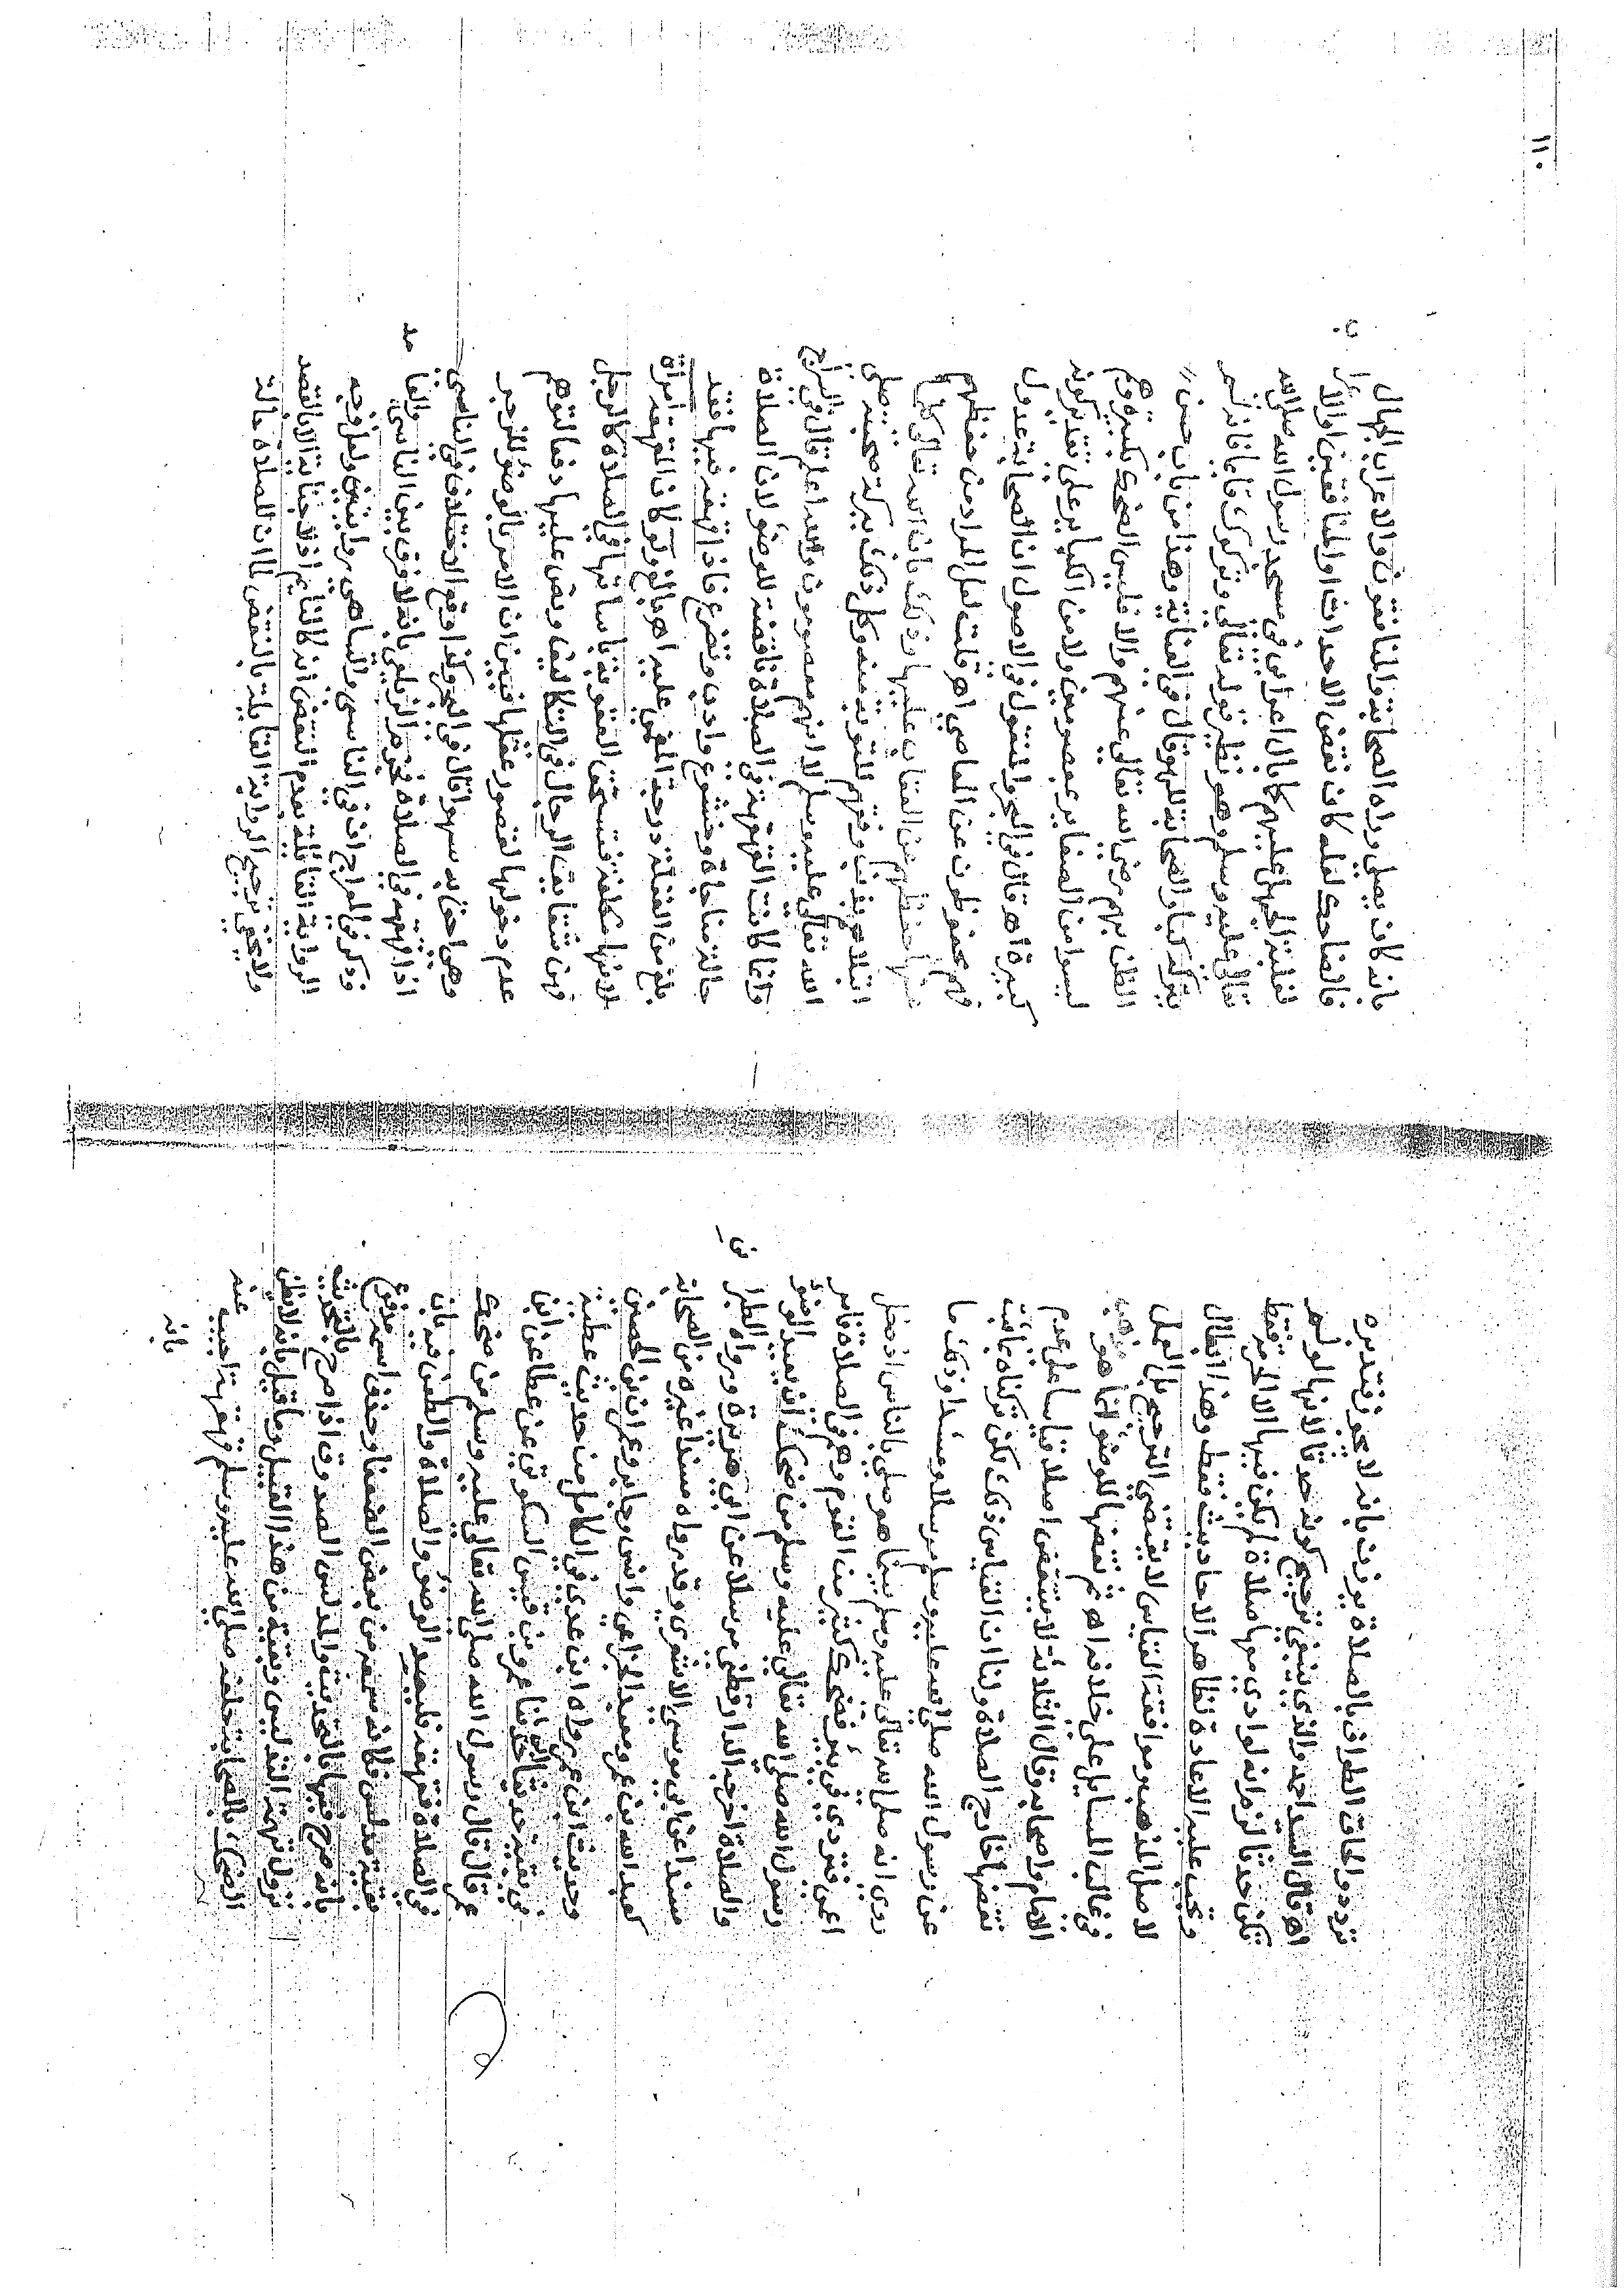 تردد والحاق الطواف بالصلاة يوذن بانه لا يجوز فتدبره
اه قال السيد احمد والذي ينبغي ترجيح كونه حدثا لانها لو لم
تكن حدثا لزم انه لو ادى بها صلاة لم يكن فيها الا الحرمة فقط
وتجب عليه الاعادة لظاهر الاحاديث فقط وهذا ابطال
لاصل المذهب وموافقة القياس لا يقتضي الترجيح بل العمل
في غالب المسايل على خلافه اه ثم نقضها للوضوء انما هو مذهب
الامام واصحابه وقال الثلاثة لا ينتقض اصلا قياسا على عدم
نقضها خارج الصلاة ولنا ان القياس ذلك لكن تركناه بما ثبت
عن رسول الله صلى الله عليه وسلم مرسلا ومسندا وذلك ما
روي انه صلى الله تعالى عليه وسلم بينما هو يصلي بالناس اذ دخل
اعمى فتردى في بير فضحك كثير من القوم وهم في الصلاة فامر
رسول الله صلى الله تعالى عليه وسلم من ضحك ان يعيد الوضوء
والصلاة اخرجه الدارقطني مرسلا عن ابي هريرة ورواه الطبراني
مسندا عن ابي موسى الاشعري وقد رواه مسندا غيره من الصحابة
كعبد الله بن عمر ومعبد الخزاعي وانس وجابر وعمران بن الحصين
وحديث ابن عمر رواه ابن عدي في الكامل من حديث عطية
بن بقية حدثنا ابي حدثنا عمرو بن قيس السكوني عن عطا عن ابن
عمر قال قال رسول الله صلى الله تعالى عليه وسلم من ضحك
في الصلاة قهقهة فليعد الوضوء والصلاة والطعن فيه بان
بقية مدلس فكانه سمعه من بعض الضعفا وحذف اسمه مدفوع
بانه صرح فيها بالتحديث والمدلس الصدوق اذا صرح بالتحديث
تزول تهمة التدليس وبقية من هذا القبيل وما قيل بانه لا يظن
الضحك بالصحابة خلفه صلى الله عليه وسلم قهقهة اجيب عنه
بانه
١١٠
بانه كان يصلي وراه الصحابة والمنافقون والاعراب الجهال
فالضاحك لعله كان بعض الاحداث او المنافقين او الاعراب
لغلبة الجهل عليهم كما بال اعرابي في مسجد رسول الله صلى الله
تعالى عليه وسلم وهو نظير قوله تعالى وتركوك قايما فانه لم
يتركه كبار الصحابة للهو قال في العناية وهذا من باب حسن
الظن بهم رضي الله تعالى عنهم والا فليس الضحك بكبيرة وهم
ليسوا من الصغاير بمعصومين ولا من الكباير على تقدير كونه
كبيرة اه قال في البحر والمنقول في الاصول ان الصحابة عدول
وهم محفوظون عن المعاصي اه قلت لعل المراد من حفظهم
منها حفظهم عن العقاب عليها وذلك بان الله تعالى كلما
ابتلاهم بذنب وفقهم للتوبة منه وكل ذلك ببركة صحبته صلى
الله تعالى عليه وسلم لا انهم معصومون والله اعلم قال في السراج
وانما كانت القهقهة في الصلاة ناقضة للوضوء لان الصلاة
حالة مناجاة وخشوع وادب وتضرع فاذا قهقه فيها فقد
بلغ من الغفلة درجة المغمى عليه اه بالغ ولو كان المقهقه امراة
لانها مكلفة فتستحق العقوبة باساتها في الصلاة كالرجل
وهن شقايق الرجال في التكاليف ونص عليها دفعا لتوهم
عدم دخولها لقصور عقلها فتبين ان الامر بالوضوء للزجر
وهي احق به سهوا قال في البحر وكذا وقع الاختلاف في الناسي
اذا قهقه في الصلاة فجزم الزيلعي بانه لا فرق بين الناسي والعامد
وذكر في المعراج ان في الناسي والساهي روايتين ولعل وجه
الرواية القايلة بعدم النقض انه كالنايم اذ لا جناية الا بالقصد
ولا يخفى ترجيح الرواية القايلة بالنقض لما ان للصلاة حالة